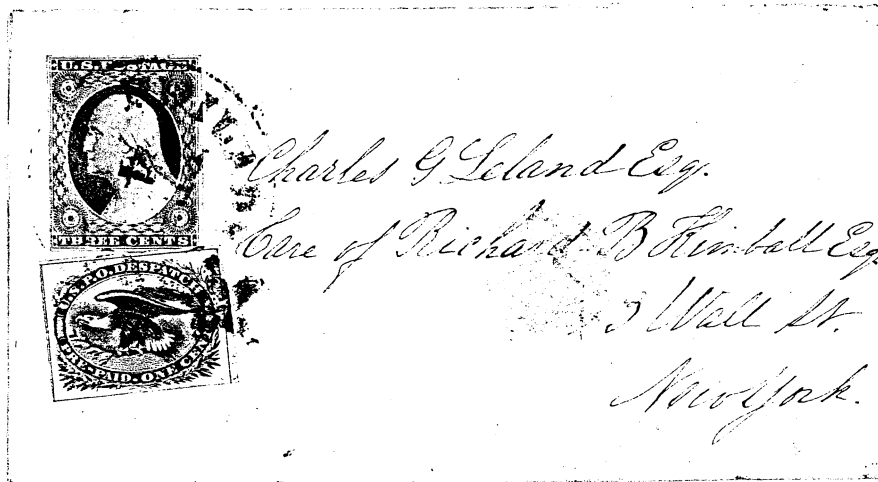 U.S. POSTAGE
THREE CENTS
U.S.P.O. DESPATCH
PRE-PAID. ONE CENT
Charles G Leland Esq.
Care of Richard B Kimball Esq
3 Wall St.
New York.